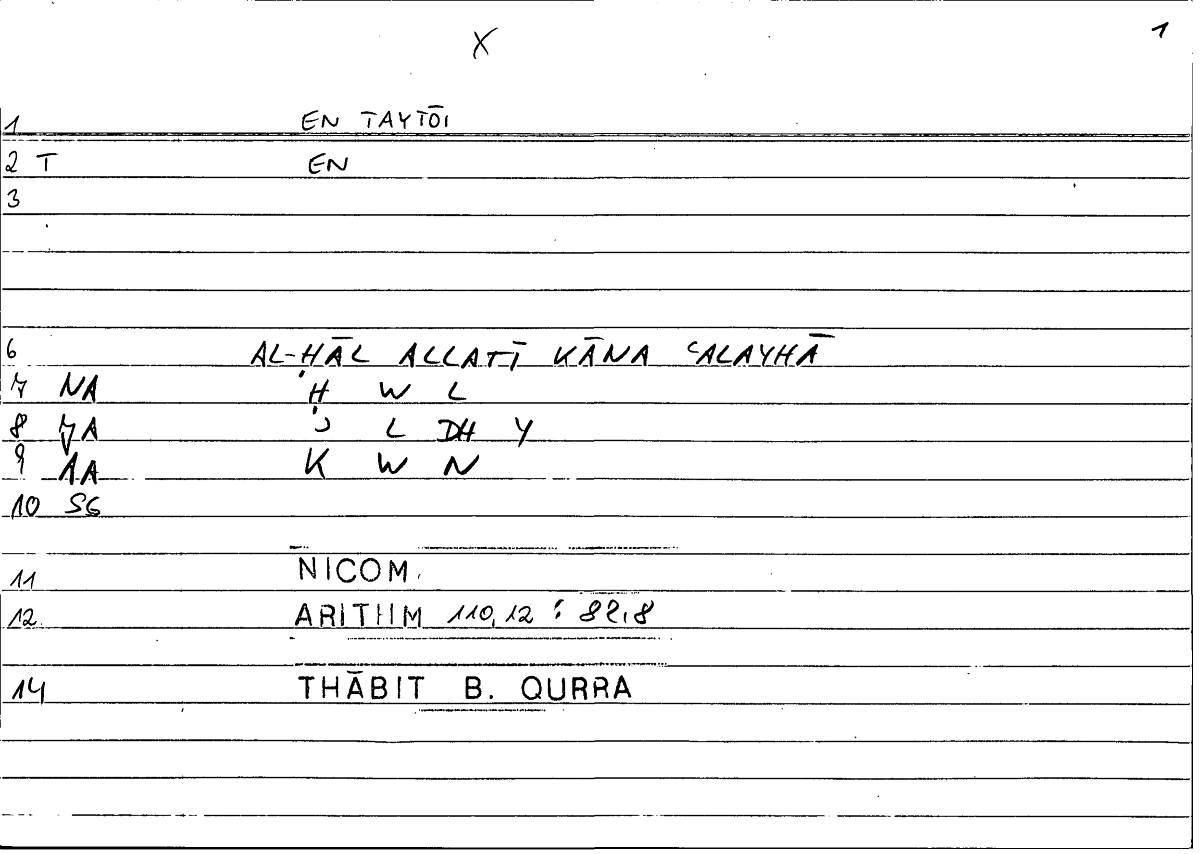 X 1
1 EN TAYTŌI
2 T EN
3
6 AL-ḤĀL ALLATĪ KĀNA ʿALAYHĀ
7 NA Ḥ W L
8 L DH Y
9 1A K W N
10 SG
11 NICOM.
12 ARITHM 110,12 : 82,8
14 THĀBIT B. QURRA